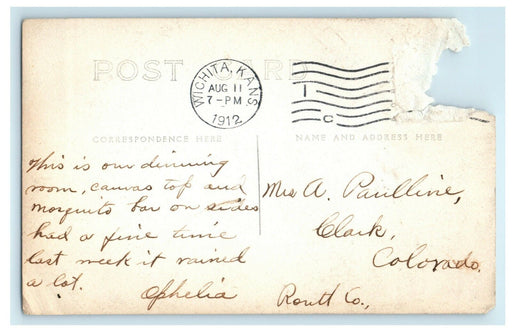 POST CARD
WICHITA, KANS
AUG 11
7-PM
1912
1
C
CORRESPONDENCE HERE
NAME AND ADDRESS HERE
This is our dinning
room, canvas top and
mosquito bar on sides
had a fine time
last week it rained
a lot.
Ophelia
Mrs A. Paulline,
Clark,
Colorado.
Routt Co.,